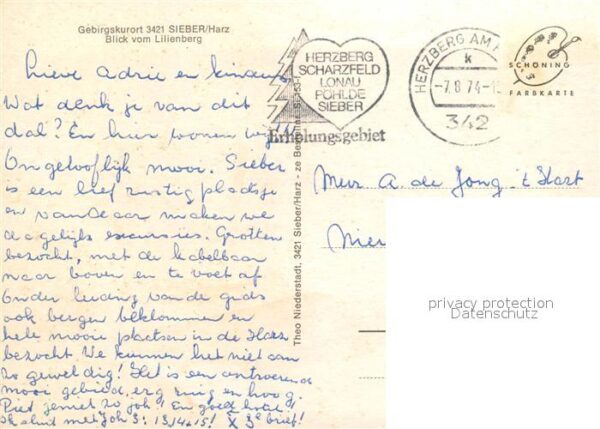 Gebirgskurort 3421 SIEBER/Harz
Blick vom Lilienberg
Lieve Adrie en kinderen
Wat denk je van dit
dal? En hier wonen wij!!
Ongelooflijk mooi. Sieber
is een lief rustig plaatsje
en vandaar maken we
dagelijks excursies. Grotten
bezocht, met de kabelbaan
naar boven en te voet af
onder leiding van de gids
ook bergen beklommen en
hele mooie plaatsen in de Harz
bezocht We kunnen het niet aan
zo geweldig! Het is een ontroerend
mooi gebied, erg ruig en hoog.
Piet geniet zo joh! En goed
Ik sluit met Joh 3: 13,14,15! X 3e brief!
Theo Niederstadt, 3421 Sieber/Harz - ze
HERZBERG
SCHARZFELD
LONAU
PÖHLDE
SIEBER
Erholungsgebiet
HERZBERG AM
k
-7.8.74-1
342
SCHÖNING
FARBKARTE
Mevr A. de Jong 't Hart
Nier
privacy protection
Datenschutz